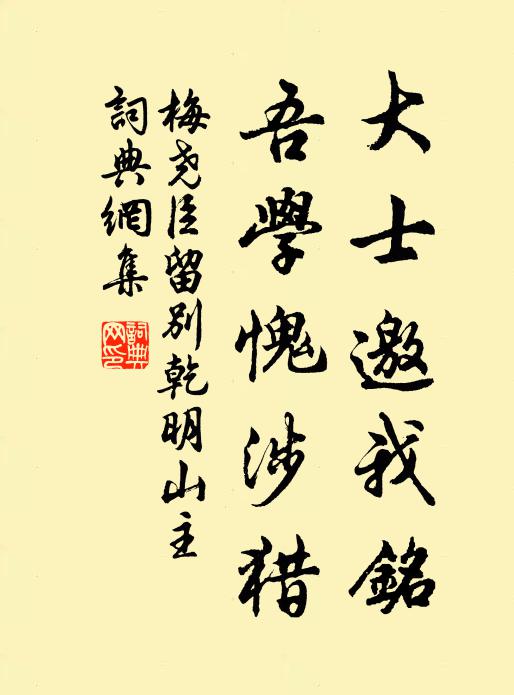 大士邀我銘
吾學愧涉猎
梅尧臣留别乾明山主
詞典網集
詞典网印